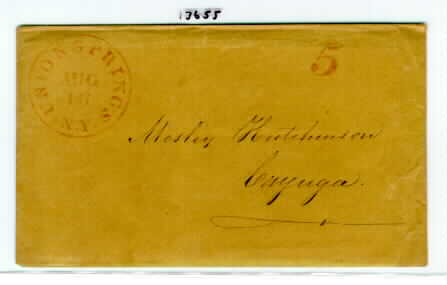 13655
UNION SPRINGS N.Y.
AUG
16
5
Mosley Hutchinson
Cayuga.